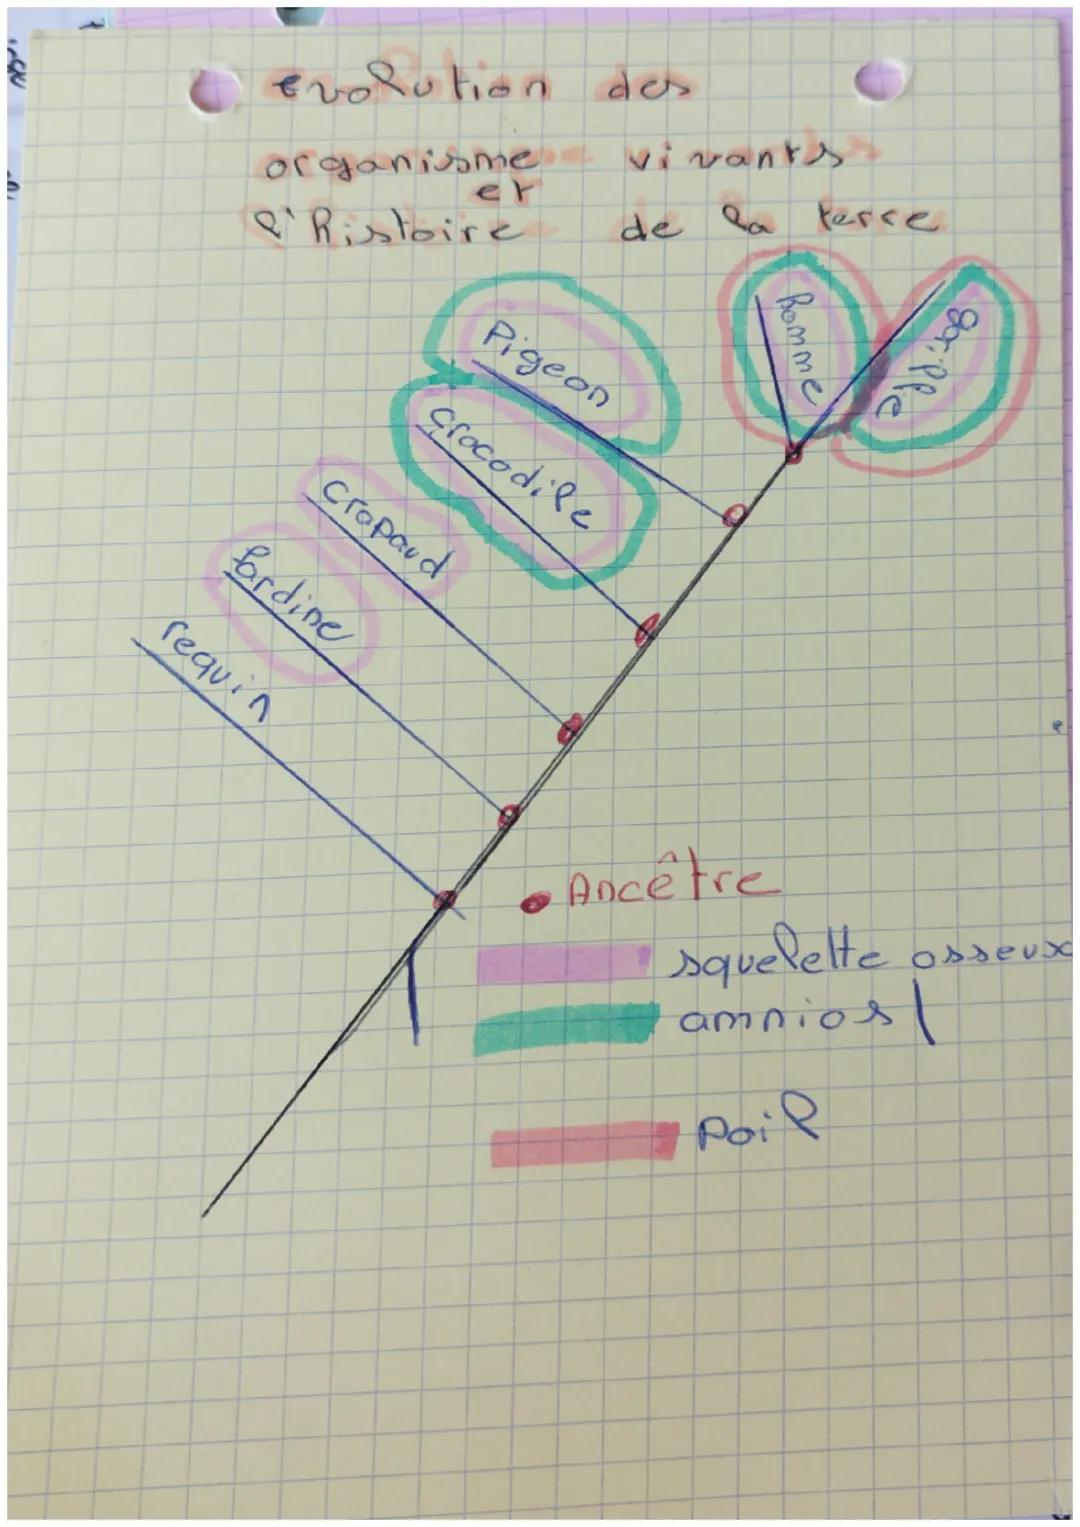 evolution des
organisme vivants
et
l'histoire de la terre
homme
gorille
Pigeon
crocodile
crapaud
sardine
requin
Ancêtre
squelette osseux
amnios
poil